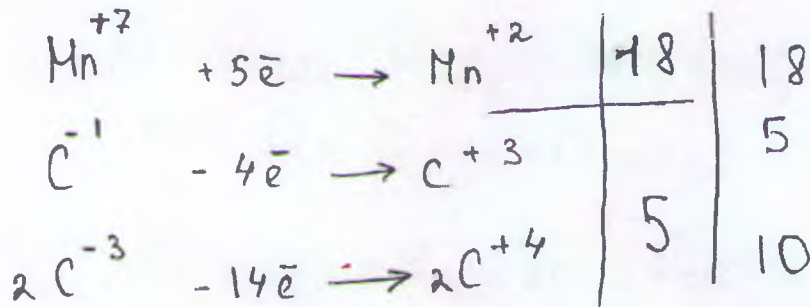 Mn⁺⁷ + 5ē → Mn⁺² | 18 | 18
C⁻¹ - 4ē → C⁺³ | 5 | 5
2C⁻³ - 14ē → 2C⁺⁴ | 10